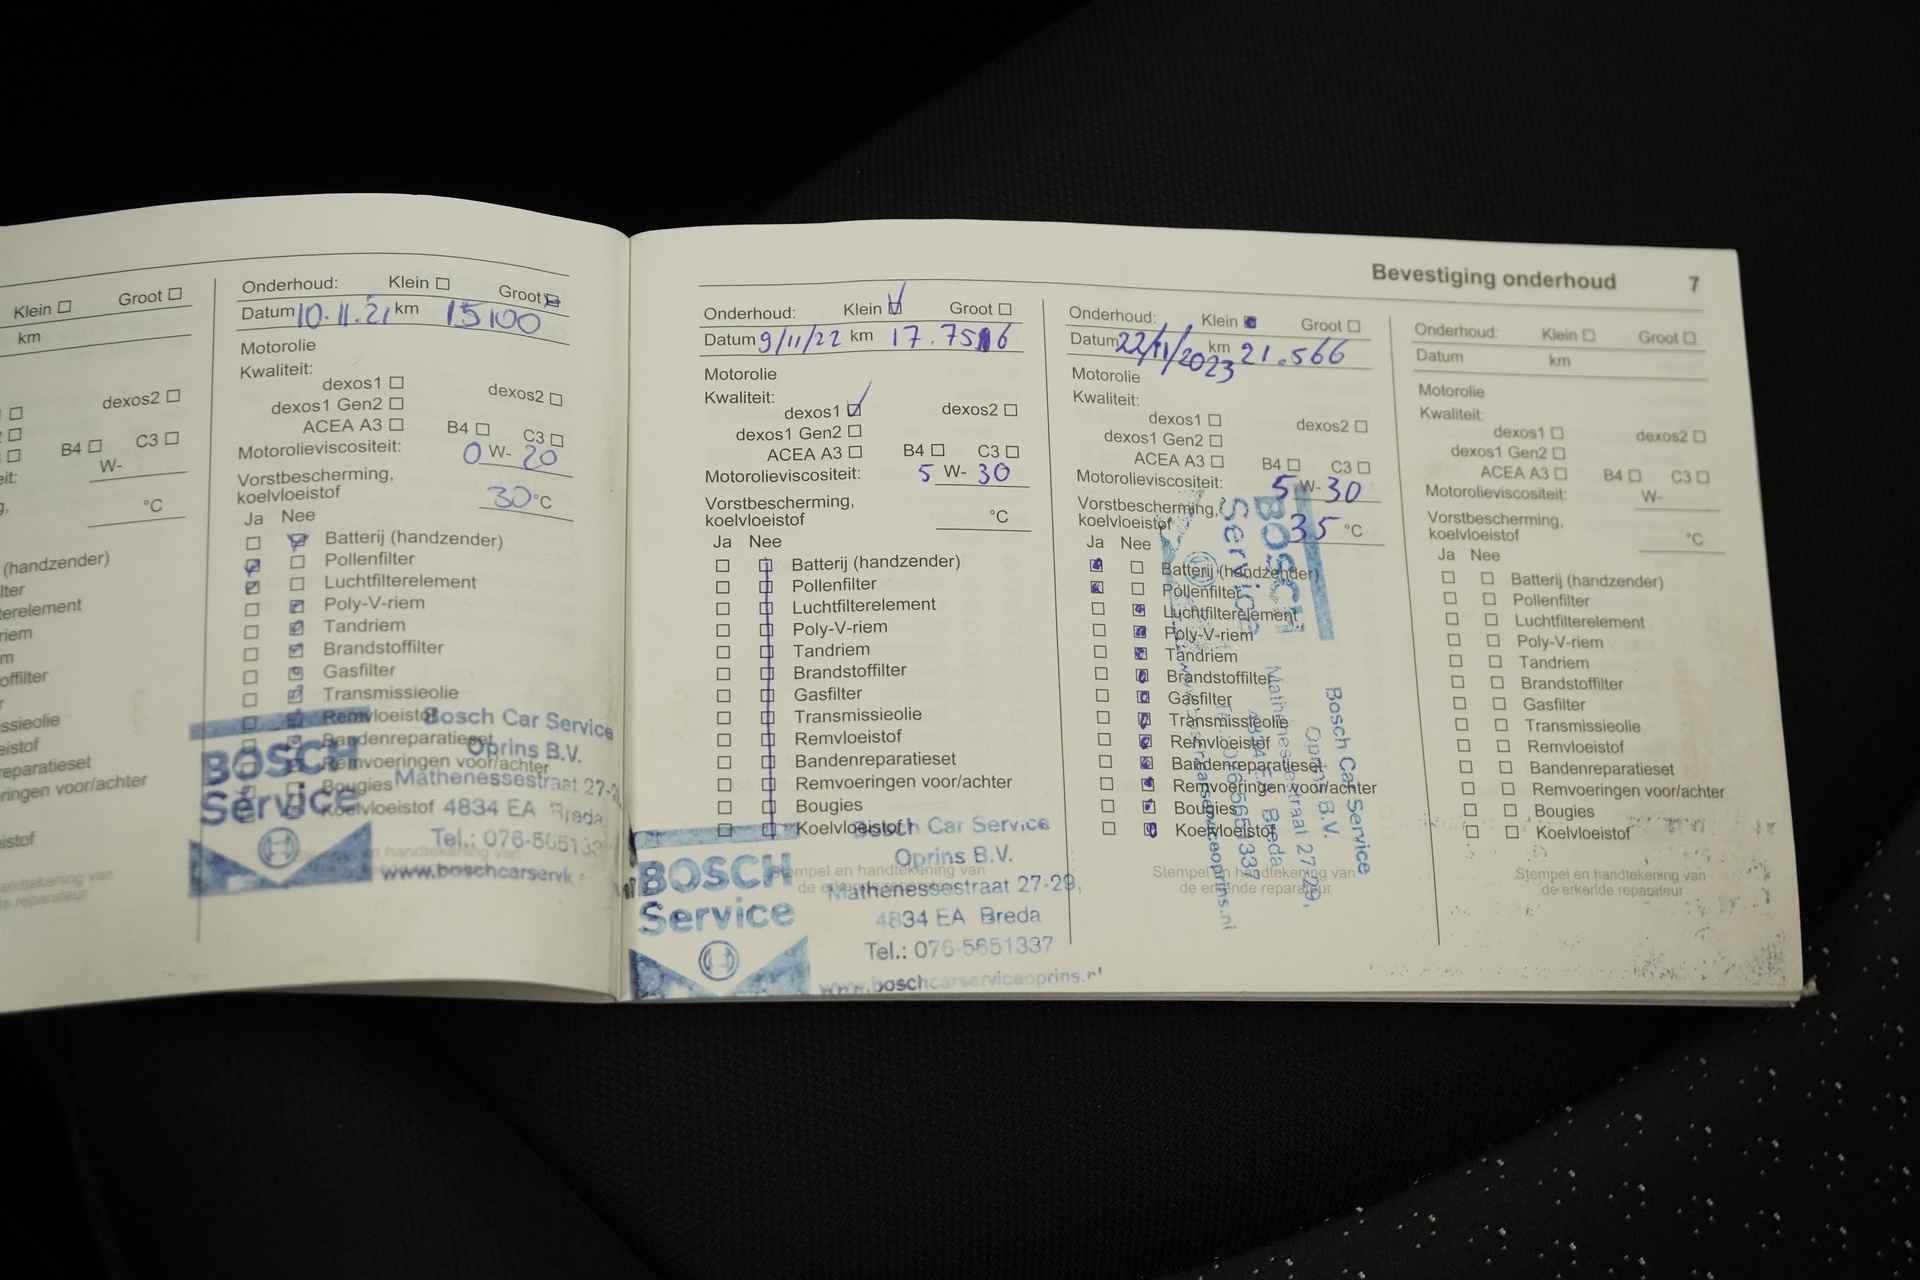 Klein Groot
km
dexos2
B4 C3
W-
°C
(handzender)
Onderhoud: Klein Groot
Datum 10.11.21 km 15100
Motorolie
Kwaliteit:
dexos1 dexos2
dexos1 Gen2
ACEA A3 B4 C3
Motorolieviscositeit: 0 W- 20
Vorstbescherming,
koelvloeistof 30 °C
Ja Nee
Batterij (handzender)
Pollenfilter
Luchtfilterelement
Poly-V-riem
Tandriem
Brandstoffilter
Gasfilter
Transmissieolie
Remvloeistof
Bandenreparatieset
Remvoeringen voor/achter
Bougies
Koelvloeistof
BOSCH
Service
Bosch Car Service
Oprins B.V.
Mathenessestraat 27-
4834 EA Breda
Tel.: 076-565133
Bevestiging onderhoud 7
Onderhoud: Klein Groot
Datum 9/11/22 km
Motorolie
Kwaliteit:
dexos1 dexos2
dexos1 Gen2
ACEA A3 B4 C3
Motorolieviscositeit: 5 W- 30
Vorstbescherming,
koelvloeistof °C
Ja Nee
Batterij (handzender)
Pollenfilter
Luchtfilterelement
Poly-V-riem
Tandriem
Brandstoffilter
Gasfilter
Transmissieolie
Remvloeistof
Bandenreparatieset
Remvoeringen voor/achter
Bougies
Koelvloeistof
Stempel en handtekening van
BOSCH
Service
Bosch Car Service
Oprins B.V.
Mathenessestraat 27-29,
4834 EA Breda
Tel.: 076-5651337
www.boschcarserviceoprins.nl
Onderhoud: Klein Groot
Datum 22/11/2023 km 21.566
Motorolie
Kwaliteit:
dexos1 dexos2
dexos1 Gen2
ACEA A3 B4 C3
Motorolieviscositeit: 5 W- 30
Vorstbescherming,
koelvloeistof 35 °C
Ja Nee
Batterij (handzender)
Pollenfilter
Luchtfilterelement
Poly-V-riem
Tandriem
Brandstoffilter
Gasfilter
Transmissieolie
Remvloeistof
Bandenreparatieset
Remvoeringen voor/achter
Bougies
Koelvloeistof
Stempel en handtekening van
de erkende reparateur
BOSCH
Service
Bosch Car Service
Oprins B.V.
Mathenessestraat 27-29,
Onderhoud: Klein Groot
Datum km
Motorolie
Kwaliteit:
dexos1 dexos2
dexos1 Gen2
ACEA A3 B4 C3
Motorolieviscositeit: W-
Vorstbescherming,
koelvloeistof °C
Ja Nee
Batterij (handzender)
Pollenfilter
Luchtfilterelement
Poly-V-riem
Tandriem
Brandstoffilter
Gasfilter
Transmissieolie
Remvloeistof
Bandenreparatieset
Remvoeringen voor/achter
Bougies
Koelvloeistof
Stempel en handtekening van
de erkende reparateur